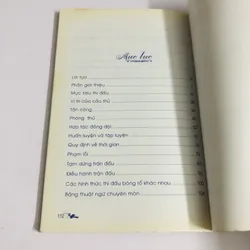 Mục lục
Lời tựa
Phần giới thiệu
Mục tiêu thi đấu
Vị trí của cầu thủ
Tấn công
Phòng thủ
Hợp tác đồng đội
Huấn luyện và tập luyện
Quy định về thời gian
Phạm lỗi
Tạm dừng trận đấu
Điều hành trận đấu
Các hình thức thi đấu bóng rổ khác nhau
Bảng thuật ngữ chuyên môn